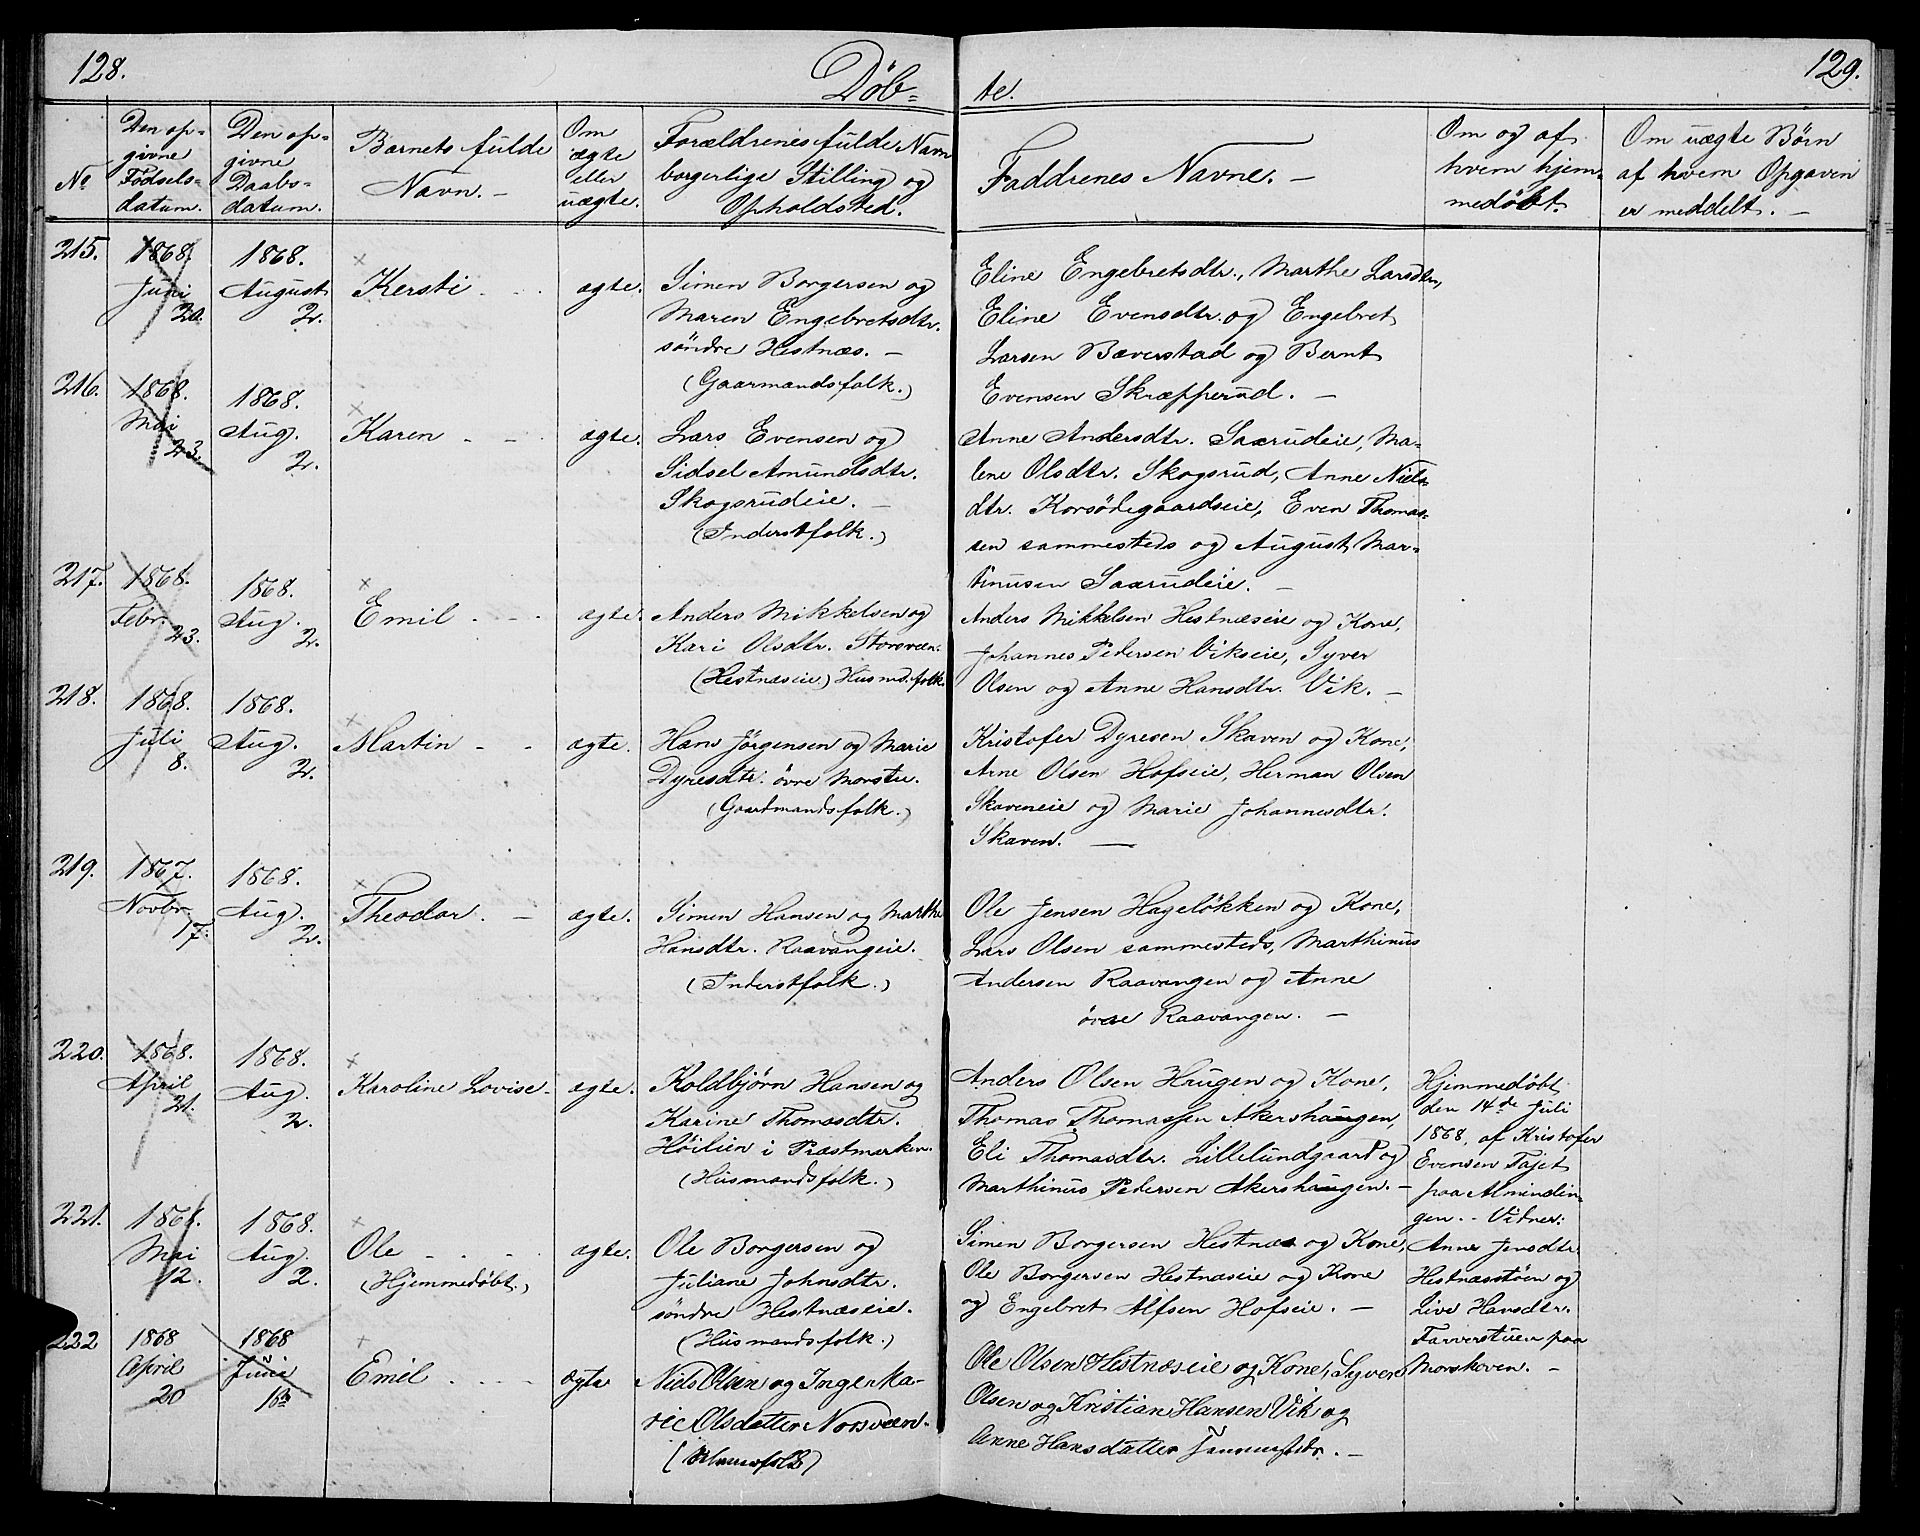 128.
Döb-
te.
129.
No
Den op-
givne
Fødsels-
datum.
Den op-
givne
Daabs-
datum.
Barnets fulde
Navn. -
Om
ægte
eller
uægte.
Forældrenes fulde Navn
borgerlige Stilling og
Opholdsted.
Faddrenes Navne. -
Om og af
hvem hjem-
medöbt.
Om uægte Börn
af hvem Opgaven
er meddelt. -
215.
1868.
Juni
20.
1868.
August
2.
Kersti
ægte.
Simen Borgersen og
Maren Engebretsdtr.
söndre Hestnæs. -
(Gaarmandsfolk.)
Eline Engebretsdtr., Marthe Larsdtr.,
Eline Evensdtr. og Engebret
Larsen Bæverstad og Bernt
Evensen Skræpperud. -
216.
1868.
Mai
23.
1868.
Aug.
2.
Karen
ægte.
Lars Evensen og
Sidsel Amundsdtr.
Skogsrudeie. -
(Inderstfolk.)
Anne Andersdtr. Saxrudeie, Ma-
lene Olsdtr. Skogsrud, Anne Niels-
dtr. Korsödegaardseie, Even Thomas-
sen sammesteds og August Mar-
tinusen Saxrudeie. -
217.
1868.
Febr.
23.
1868.
Aug.
2.
Emil
ægte.
Anders Mikkelsen og
Kari Olsdtr. Storsveen.
(Hestnæseie) Husmd.folk.
Anders Mikkelsen Hestnæseie og Kone,
Johannes Pedersen Vikseie, Syver
Olsen og Anne Hansdtr. Vik. -
218.
1868.
Juli
8.
1868.
Aug.
2.
Martin
ægte.
Hans Jörgensen og Marie
Dyresdtr. övre Morstu.
(Gaardmandsfolk.)
Kristofer Dyresen Skaven og Kone,
Arne Olsen Hofseie, Herman Olsen
Skaveneie og Marie Johannesdtr.
Skaven. -
219.
1867.
Novbr.
17.
1868.
Aug.
2.
Theodor.
ægte.
Simen Hansen og Marthe
Hansdtr. Raavangeie.
(Inderstfolk.)
Ole Jensen Hagelökken og Kone,
Lars Olsen sammesteds, Marthinus
Andersen Raavangen og Anne
övre Raavangen. -
220.
1868.
April
21.
1868.
Aug.
2.
Karoline Lovise
ægte.
Koldbjørn Hansen og
Karine Thomasdtr.
Höilien i Præstmarken.
(Husmandsfolk.)
Anders Olsen Hrugen og Kone,
Thomas Thomassen Akershaugen,
Eli Thomasdtr. Lillelundgaard og
Marthinus Pedersen Akershaugen. -
Hjemmedöbt
den 14de Juli
1868, af Kristofer
Evensen Tajet
paa Almindin-
gen. - Vidner:
Anne Jensdtr.
Hestnæsstöen og
Live Hansdtr.
Farverstuen paa
Morskoven. -
221.
1868.
Mai
12.
1868.
Aug.
2.
Ole
(Hjemmedöbt.)
ægte.
Ole Borgersen og
Juliane Johnsdtr.
söndre Hestnæseie.
(Husmandsfolk.)
Simen Borgersen Hestnæs og Kone,
Ole Borgersen Hestnæseie og Kone
og Engebret Alfsen Hofseie. -
222
1868
April
20
1868
Juni
Emil
ægte
Niels Olsen og Inger Ka-
rie Olsdatter Norsveen.
Ole Olsen Hestnæseie og Kone, Syver
Olsen og Kristian Hansen Vik og
Anne Hansdatter sammesteds. -